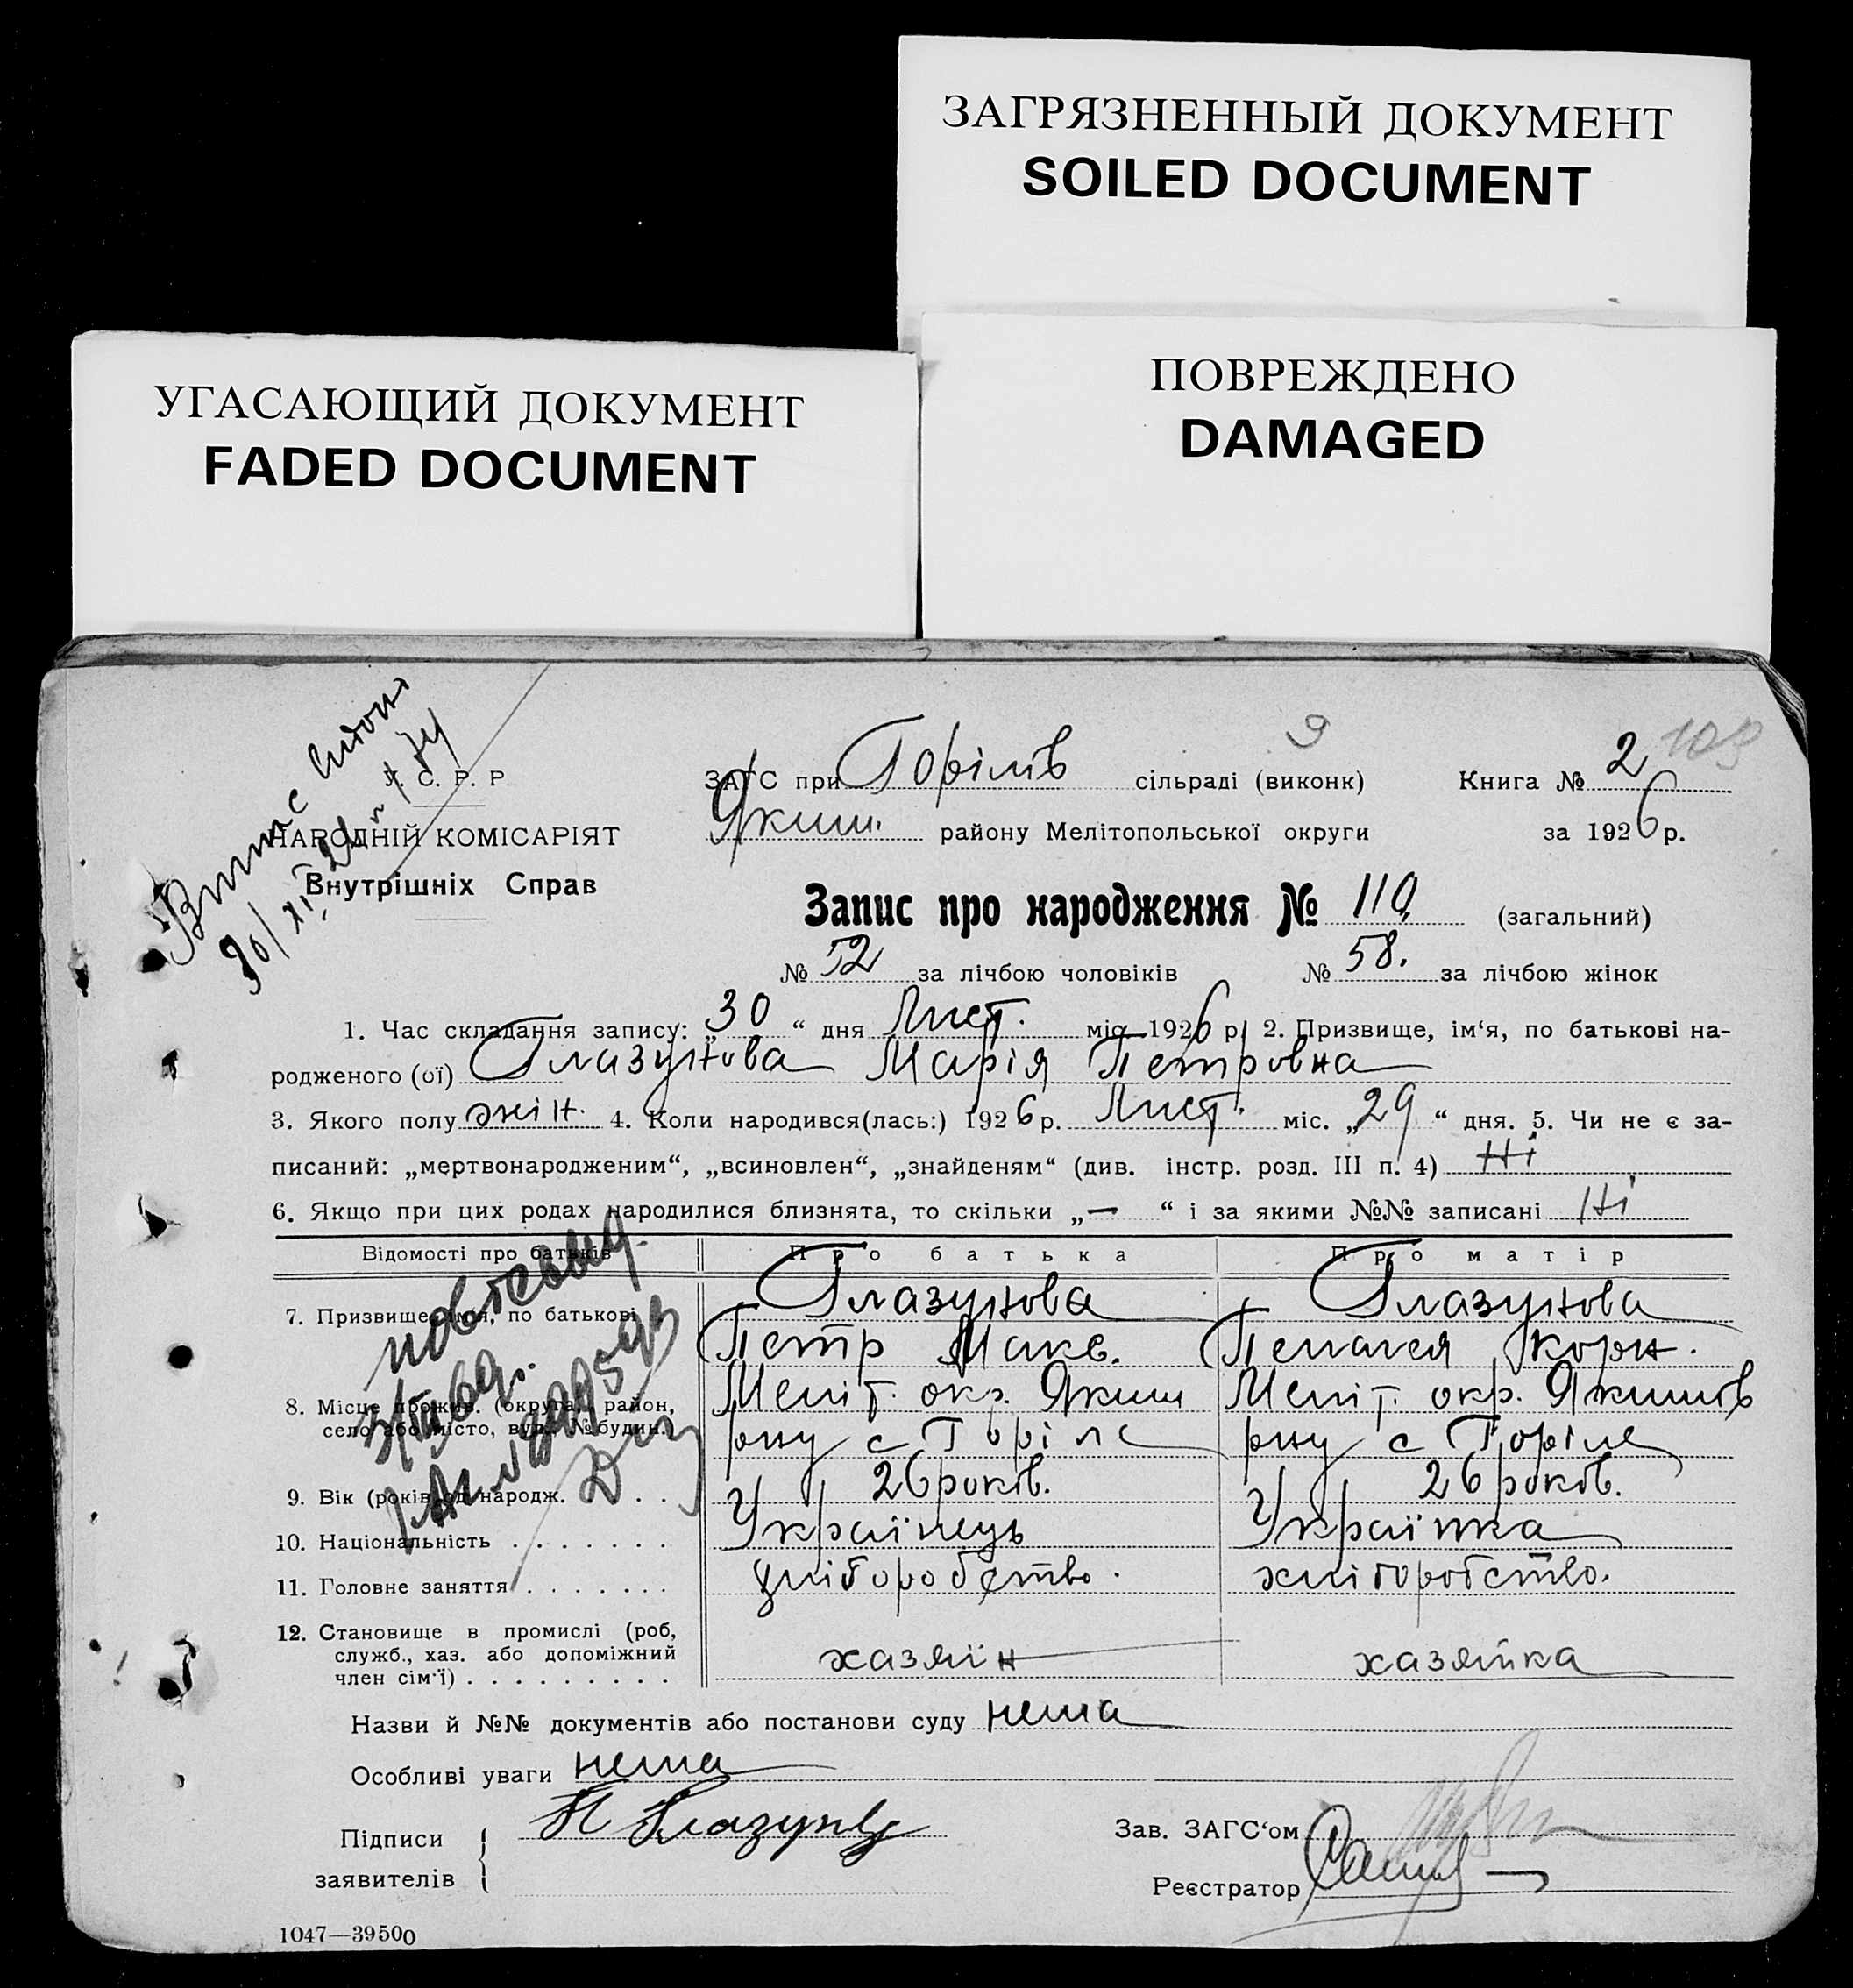 ЗАГРЯЗНЕННЫЙ ДОКУМЕНТ
SOILED DOCUMENT
УГАСАЮЩИЙ ДОКУМЕНТ
FADED DOCUMENT
ПОВРЕЖДЕНО
DAMAGED
У. С. Р. Р
НАРОДНІЙ КОМІСАРІЯТ
Внутрішніх Справ
9
103
ЗАГС при Горілів сільраді (виконк) Книга № 2
Яким. району Мелітопольської округи за 1926 р.
Запис про народження № 110 (загальний)
№ 52 за лічбою чоловіків № 58. за лічбою жінок
1. Час складання запису: „30“ дня Лист. міс 1926 р 2. Призвище, ім‘я, по батькові на-
родженого (ої) Глазунова Марія Петровна
3. Якого полу жін. 4. Коли народився(лась:) 1926 р. Лист. міс. „29“ дня. 5. Чи не є за-
писаний: „мертвонародженим“, „всиновлен“, „знайденям“ (див. інстр. розд. III п. 4) Ні
6. Якщо при цих родах народилися близнята, то скільки „—“ і за якими №№ записані Ні
Відомості про батьків Про батька Про матір
7. Призвище, імя, по батькові Глазунова Глазунова
Петр Макс. Пелагея Корн.
8. Місце прожив. (округа, район, Меліт. окр. Яким Меліт. окр. Якимів
село або місто, вул., № будин.) рну с Горіле рну с Горіле
9. Вік (років од народж. . . . 26 років. 26 років.
10. Національність . . . . . . . Українець Українка
11. Головне заняття . . . . . . . хліборобство. хліборобство.
12. Становище в промислі (роб,
служб., хаз. або допоміжний хазяїн хазяйка
член сім‘ї) . . . . . . . . .
Назви й №№ документів або постанови суду нема
Особливі уваги нема
Підписи П Глазунов Зав. ЗАГС‘ом
заявителів Реєстратор
1047—39500